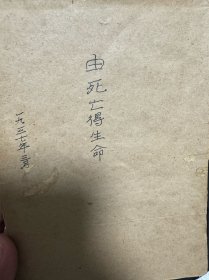 由死亡得生命
一九三七年三月